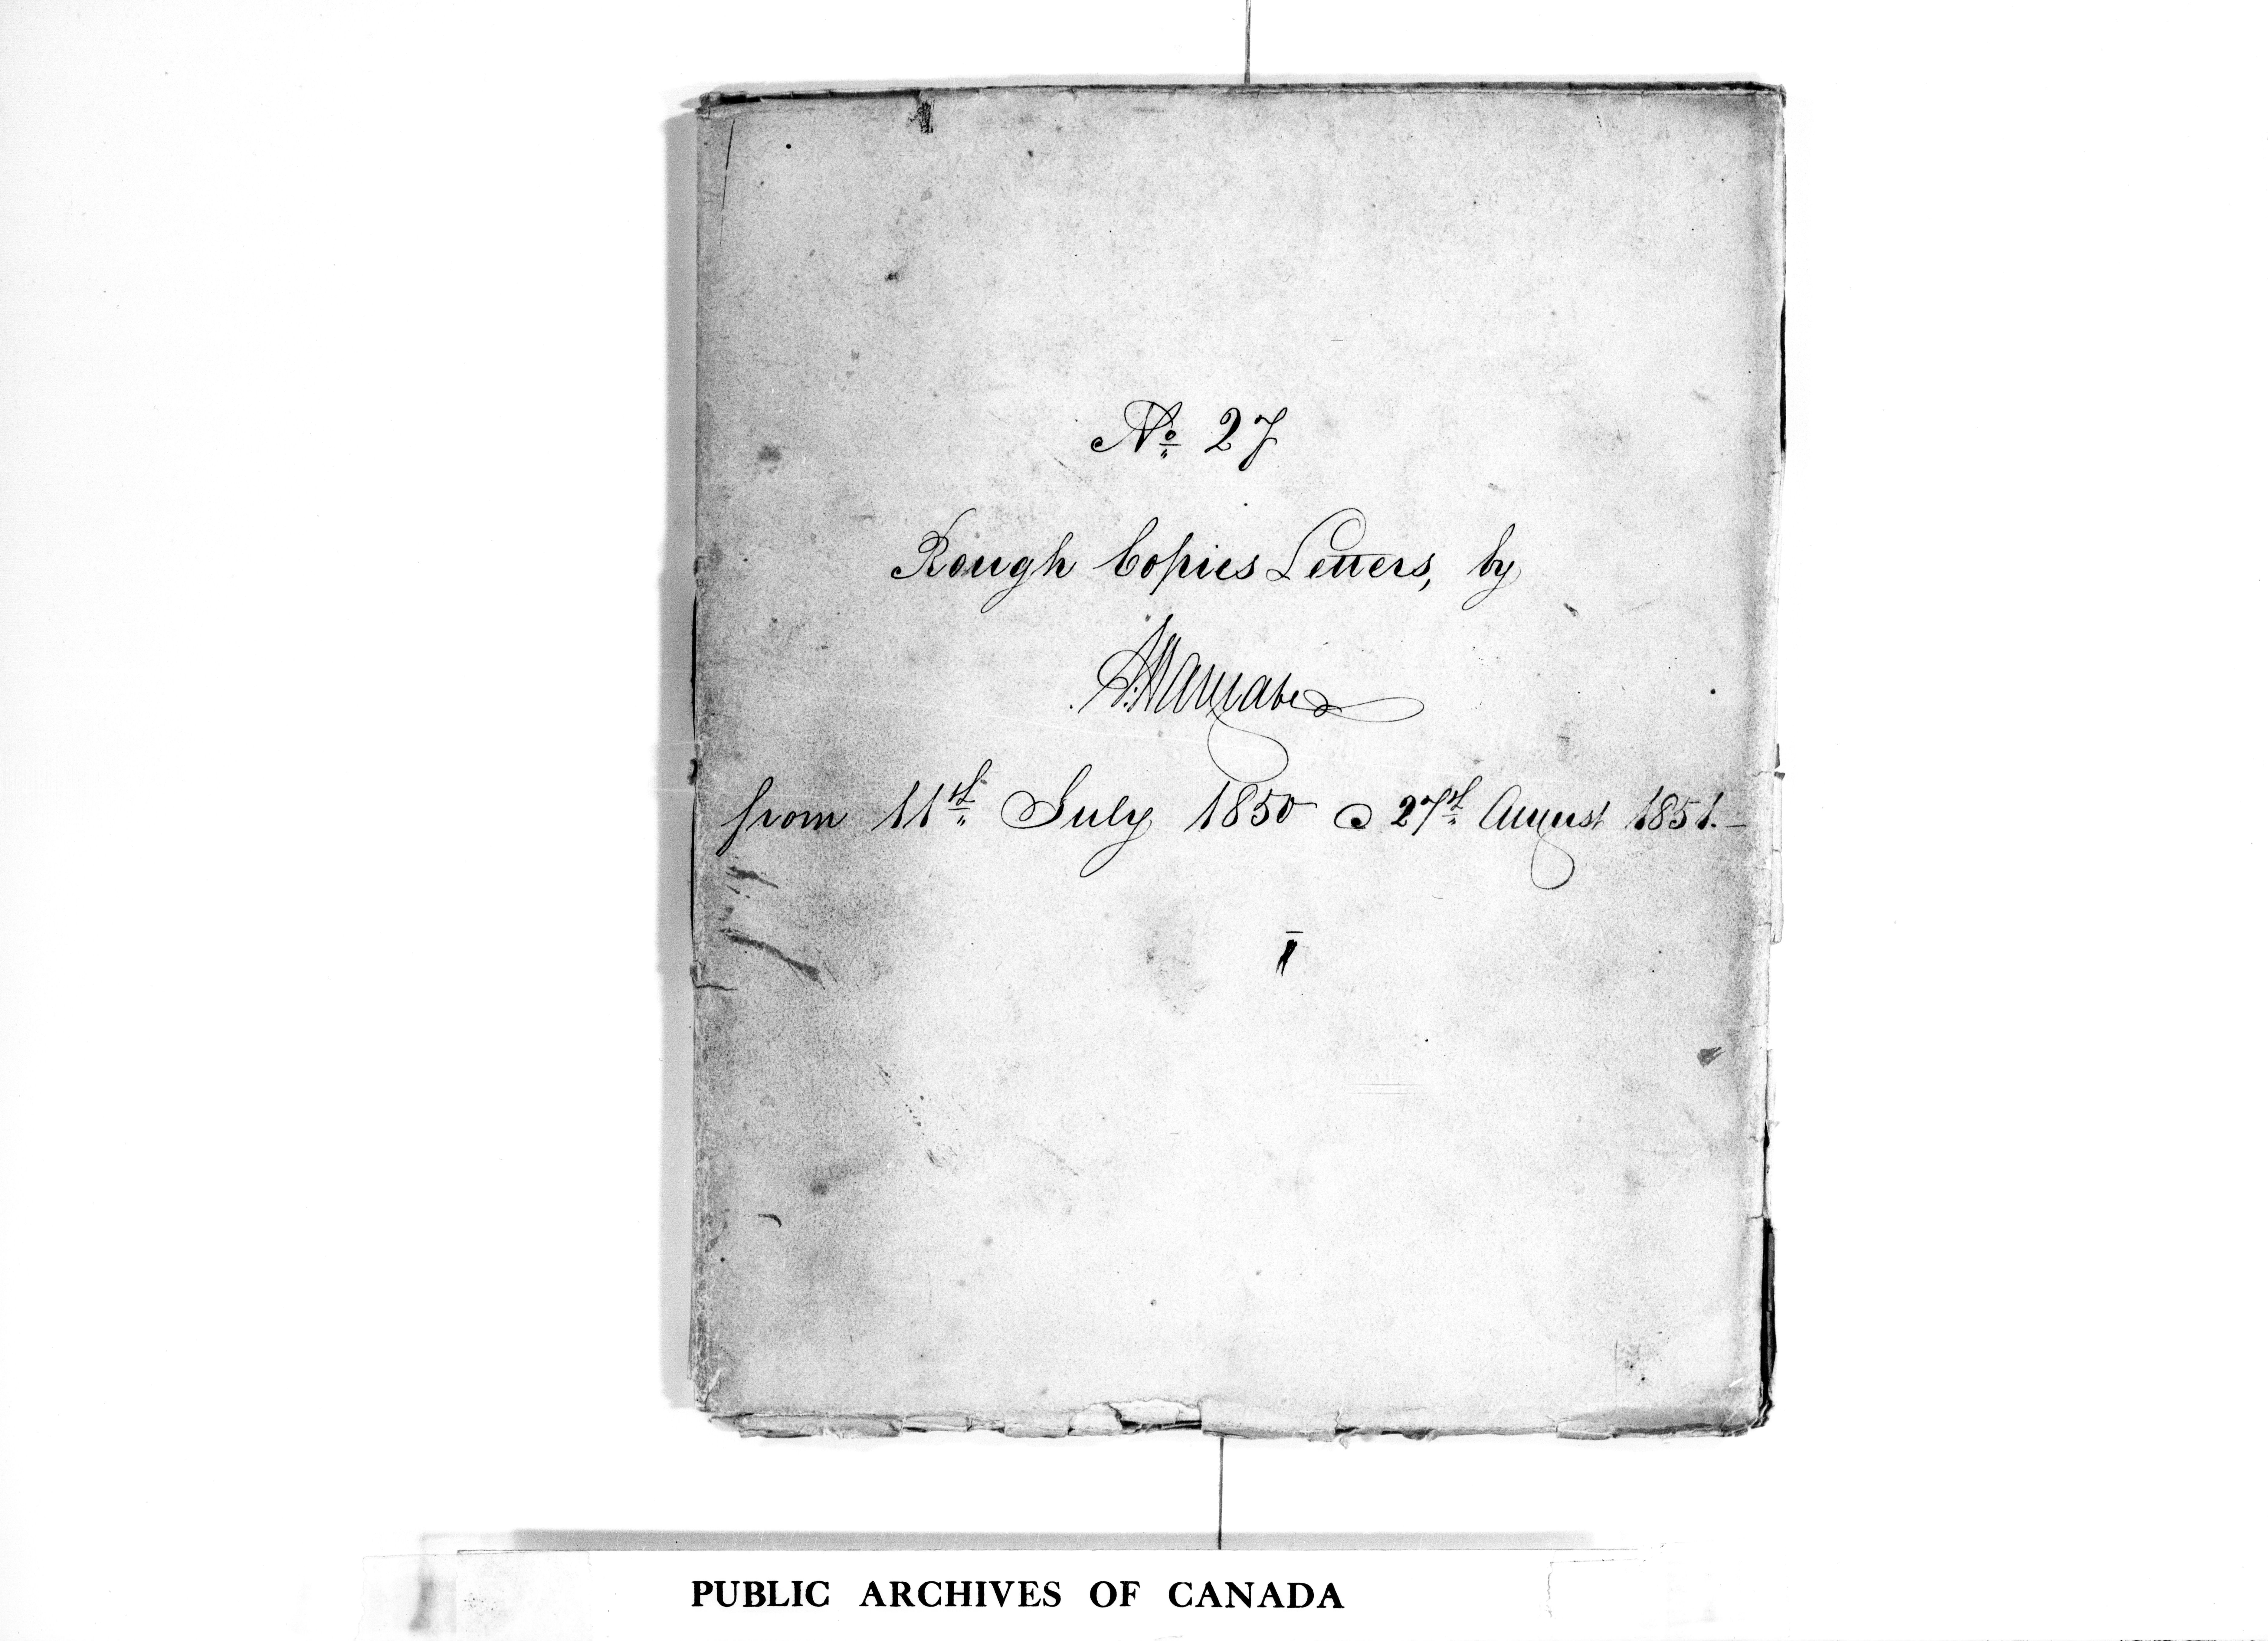 No. 27
Rough Copies Letters, by
from 11th July 1850 @ 27th August 1851.—
PUBLIC ARCHIVES OF CANADA